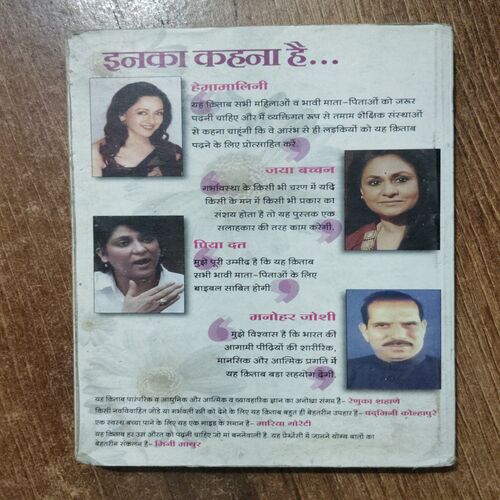 इनका कहना है...
हेमामालिनी
यह किताब सभी महिलाओं व भावी माता-पिताओं को जरूर
पढ़नी चाहिए और मैं व्यक्तिगत रूप से तमाम शैक्षिक संस्थाओं
से कहना चाहूंगी कि वे आरंभ से ही लड़कियों को यह किताब
पढ़ने के लिए प्रोत्साहित करें.
जया बच्चन
गर्भावस्था के किसी भी चरण में यदि
किसी के मन में किसी भी प्रकार का
संशय होता है तो यह पुस्तक एक
सलाहकार की तरह काम करेगी.
प्रिया दत्त
मुझे पूरी उम्मीद है कि यह किताब
सभी भावी माता-पिताओं के लिए
बाइबल साबित होगी.
मनोहर जोशी
मुझे विश्वास है कि भारत की
आगामी पीढ़ियों की शारीरिक,
मानसिक और आत्मिक प्रगति में
यह किताब बडा सहयोग देगी.
यह किताब पारंपरिक व आधुनिक और आत्मिक व व्यावहारिक ज्ञान का अनोखा संगम है- रेणुका शहाणे
किसी नवविवाहित जोडे या गर्भवती स्त्री को देने के लिए यह किताब बहुत ही बेहतरीन उपहार है- पद्मिनी कोल्हापुरे
एक स्वस्थ बच्चा पाने के लिए यह एक गाइड के समान है- मारिया गोरेटी
यह किताब हर उस औरत को पढ़नी चाहिए जो मां बननेवाली है. यह प्रेग्नेंसी में जानने योग्य बातों का
बेहतरीन संकलन है- मिनी माथुर